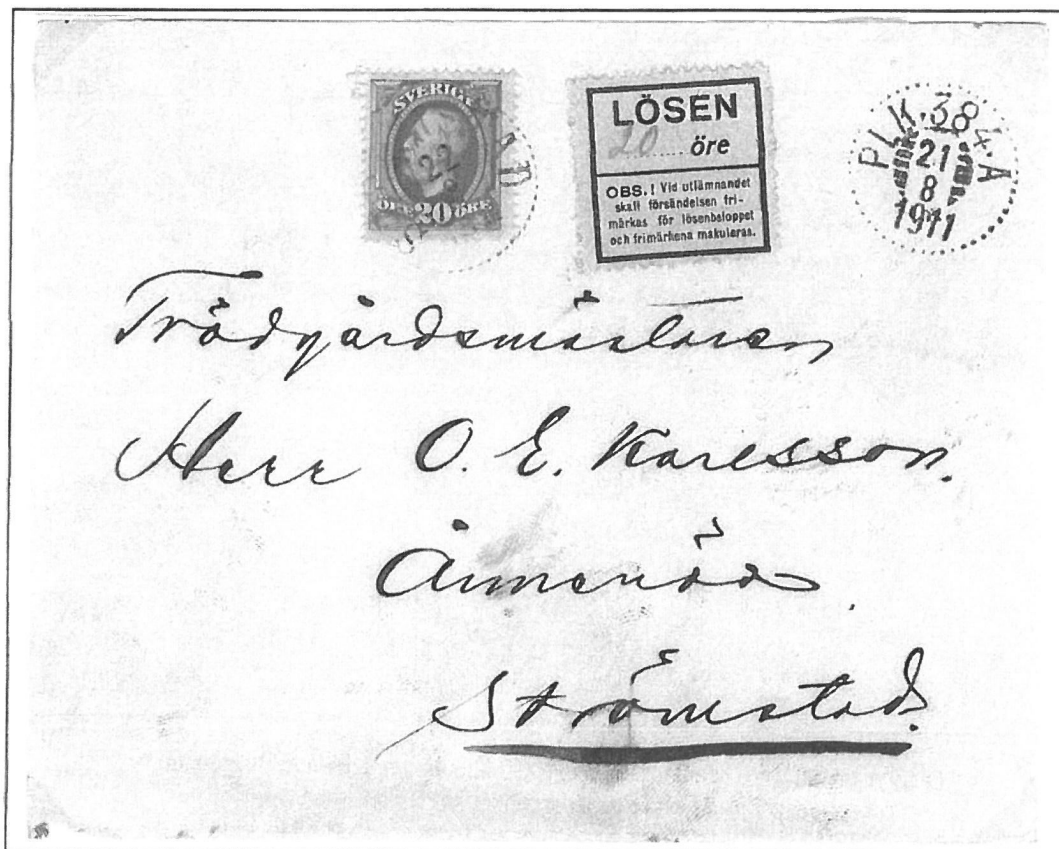 SVERIGE
22
ÖRE 20 ÖRE
LÖSEN
20 öre
OBS.! Vid utlämnandet
skall försändelsen fri-
märkas för lösenbeloppet
och frimärkena makuleras.
PLK.384.A
21
8
1911
Trädgårdsmästaren
Herr O. E. Karlsson.
Strömstad.